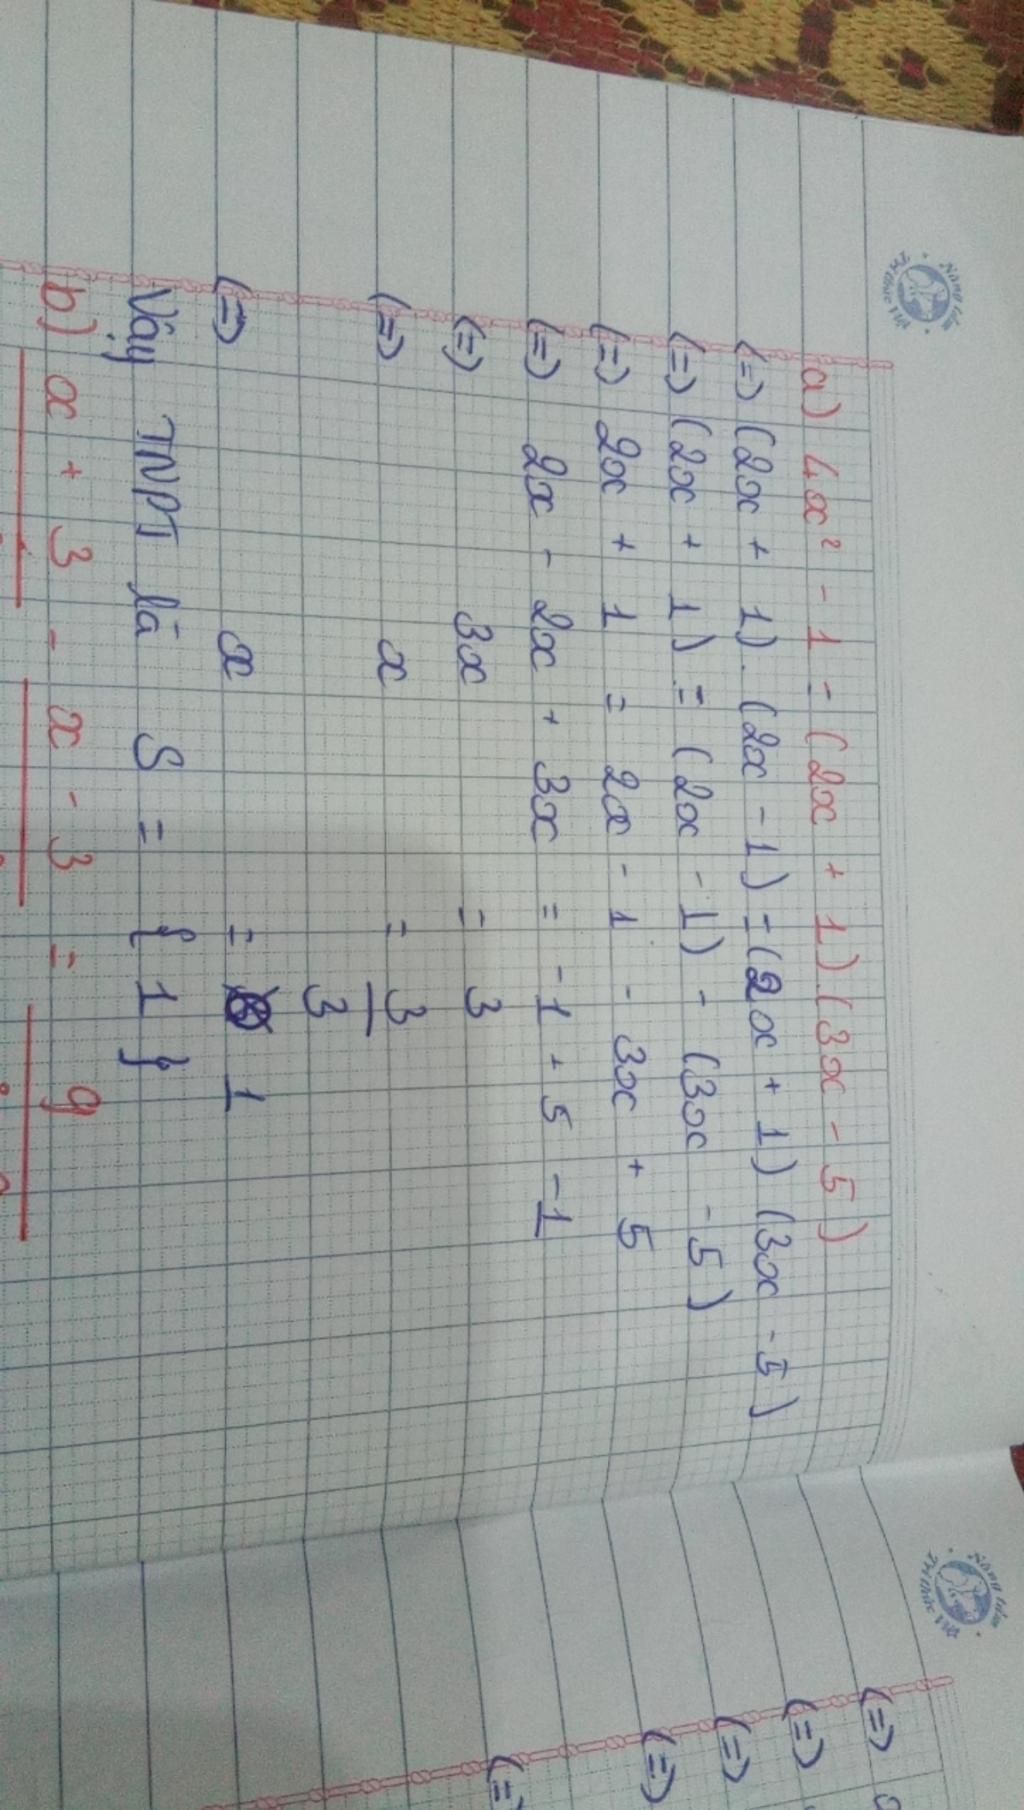 a) 4x² - 1 = (2x + 1)(3x - 5)
(=) (2x + 1). (2x - 1) = (2x + 1) (3x - 5)
(=) (2x + 1) = (2x - 1) - (3x - 5)
(=) 2x + 1 = 2x - 1 - 3x + 5
(=) 2x - 2x + 3x = -1 + 5 - 1
(=) 3x = 3
(=) x = 3/3
(=) x = 1
Vậy TNPT là S = { 1 }
b) x + 3 - x - 3 = 9
(=)
(=)
(=)
(=)
(=)